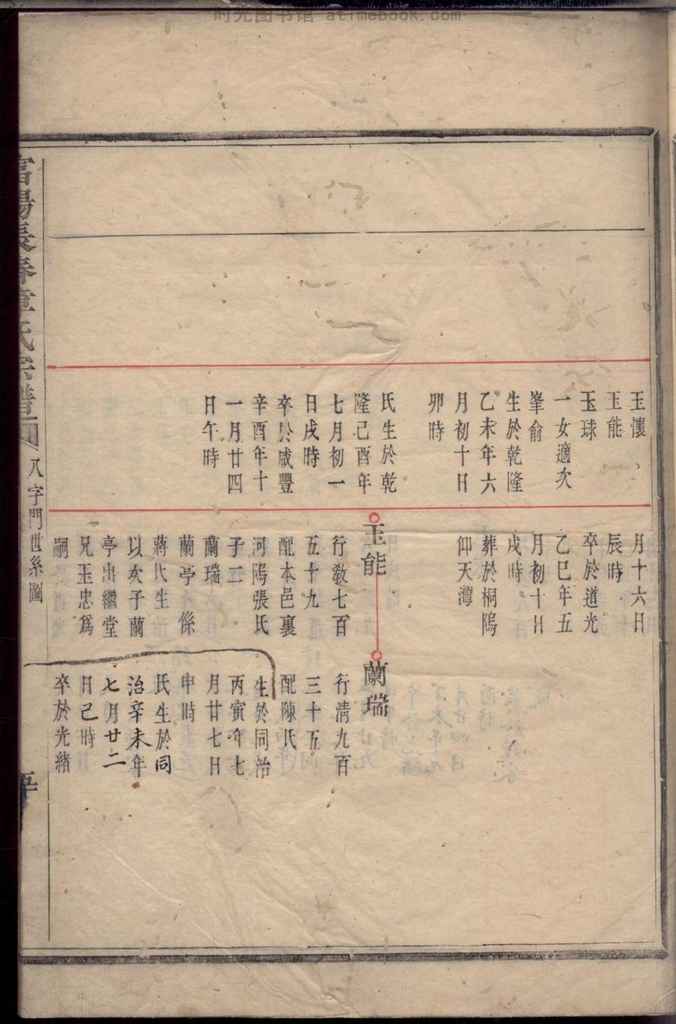 时光图书馆 atimebook.com
玉懷
玉能
玉球
一女適次
峯俞
生於乾隆
乙未年六
月初十日
卯時
氏生於乾
隆己酉年
七月初一
日戌時
卒於咸豐
辛酉年十
一月廿四
日午時
月十六日
辰時
卒於道光
乙巳年五
月初十日
戌時
葬於桐塢
仰天潭
玉能
行敎七百
五十九
配本邑裏
河陽張氏
子二
蘭瑞
蘭亭 係
蔣氏生
以次子蘭
亭出繼堂
兄玉忠爲
嗣
蘭瑞
行清九百
三十五
配陳氏
生於同治
丙寅年七
月廿七日
申時
氏生於同
治辛未年
七月廿二
日己時
卒於光緒
富陽長春章氏宗譜
八字門世系圖